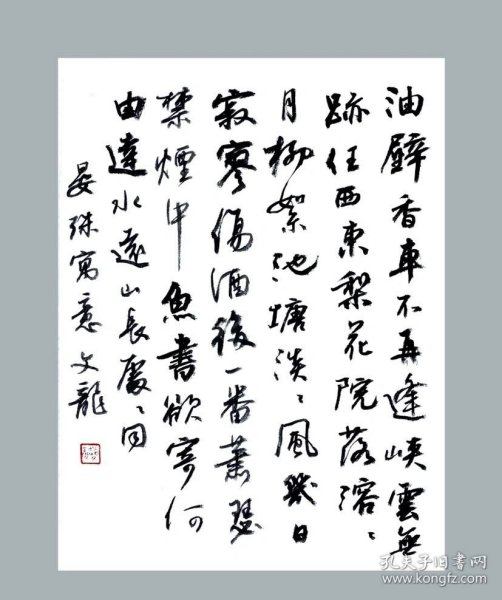 油壁香車不再逢峽雲無
跡任西東梨花院落溶々
月柳絮池塘淡々風幾日
寂寥傷酒後一番蕭瑟
禁煙中魚書欲寄何
由達水遠山長處々同
晏殊寓意文龍
孔夫子旧书网
www.kongfz.com